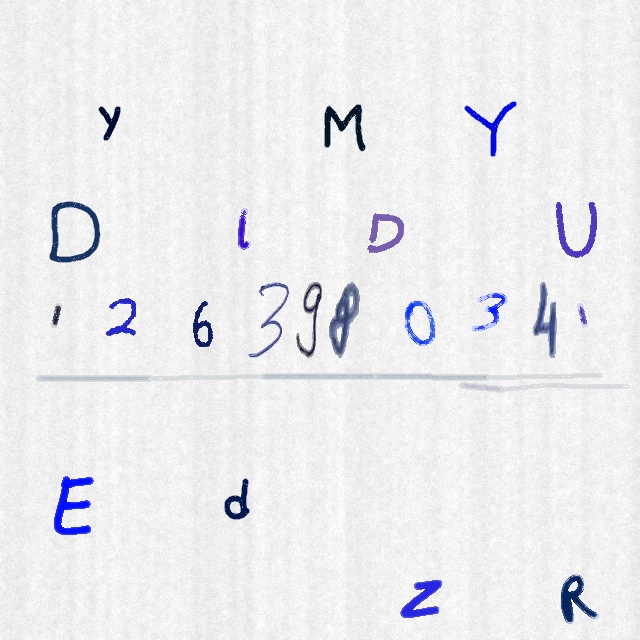 y M Y
D l D U
1 2 6 3 9 8 0 3 4 1
E d
Z R